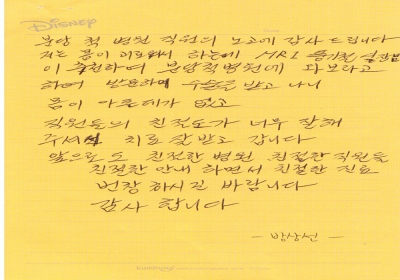 DISNEY
분당 척 병원 직원의 노고에 감사 드립니다
저는 몸이 괴로워서 하는데 MRI 찍기전
이 추천하여 분당척병원에 와보라고
하여 방문하여 수술을 받고 나니
몸이 아픈데가 없고
직원들의 친절도가 너무 잘해
주셔서 치료 잘 받고 갑니다
앞으로도 친절한 병원 친절한 직원들
친절한 안내 하면서 친절한 진료
번창 하시길 바랍니다
감사 합니다
- 방상선 -